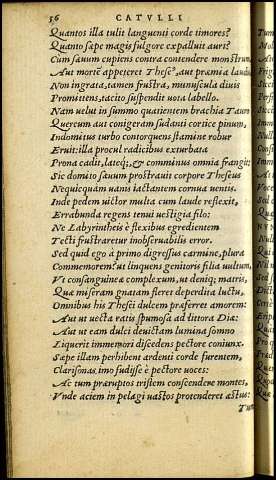 56 CATVLLI
Quantos illa tulit languenti corde timores?
Quanto sæpe magis fulgore expalluit auri?
Cum sæuum cupiens contra contendere monstrum,
Aut mortẽ appeteret Theseꝰ, aut præmia laudis,
Non ingrata, tamen frustra, munuscula diuis
Promittens, tacito suspendit uota labello.
Nam uelut in summo quatientem brachia Tauro
Quercum aut conigeram sudanti cortice pinum,
Indomitus turbo contorquens flamine robur
Eruit: illa procul radicibus exturbata
Prona cadit, lateq́;, & comminus omnia frangit:
Sic domito sæuum prostrauit corpore Theseus
Nequicquam uanis iactantem cornua uentis.
Inde pedem uictor multa cum laude reflexit,
Errabunda regens tenui uestigia filo:
Ne Labyrintheis è flexibus egredientem
Tecti frustraretur inobseruabilis error.
Sed quid ego à primo digressus carmine, plura
Commemorem? ut linquens genitoris filia uultum,
Vt consanguineæ complexum, ut deniq; matris,
Quæ miseram gnatam fleret deperdita luctu,
Omnibus his Thesei dulcem præferret amorem:
Aut ut uecta ratis spumosa ad littora Diæ:
Aut ut eam dulci deuictam lumina somno
Liquerit immemori discedens pectore coniunx.
Sæpe illam perhibent ardenti corde furentem,
Clarisonas imo fudisse è pectore uoces:
Ac tum præruptos tristem conscendere montes,
Vnde aciem in pelagi uastos protenderet æstus:
Tum